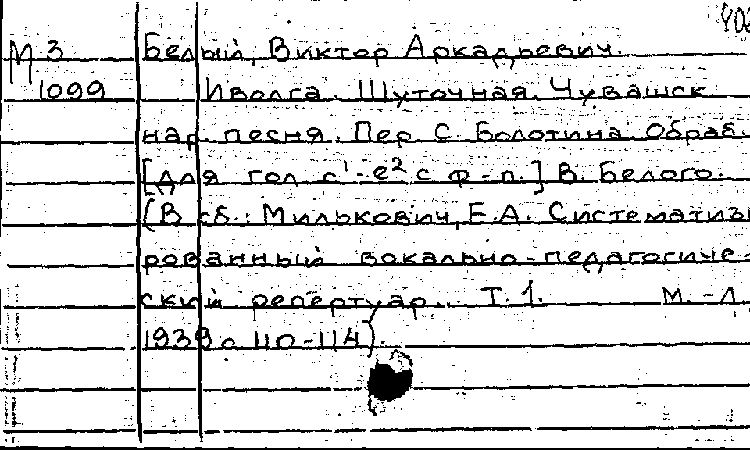 М 3 Белый, Виктор Аркадьевич.
1099 Иволга. Шуточная. Чувашск.
нар. песня. Пер. С. Болотина. Обраб.
[для гол. c¹-e² с ф-п.] В. Белого.
(В сб.: Милькович, Е.А. Системати
рованный вокально-педагогиче-
ский репертуар. Т. 1. М.-Л.
1939 с 110-114).